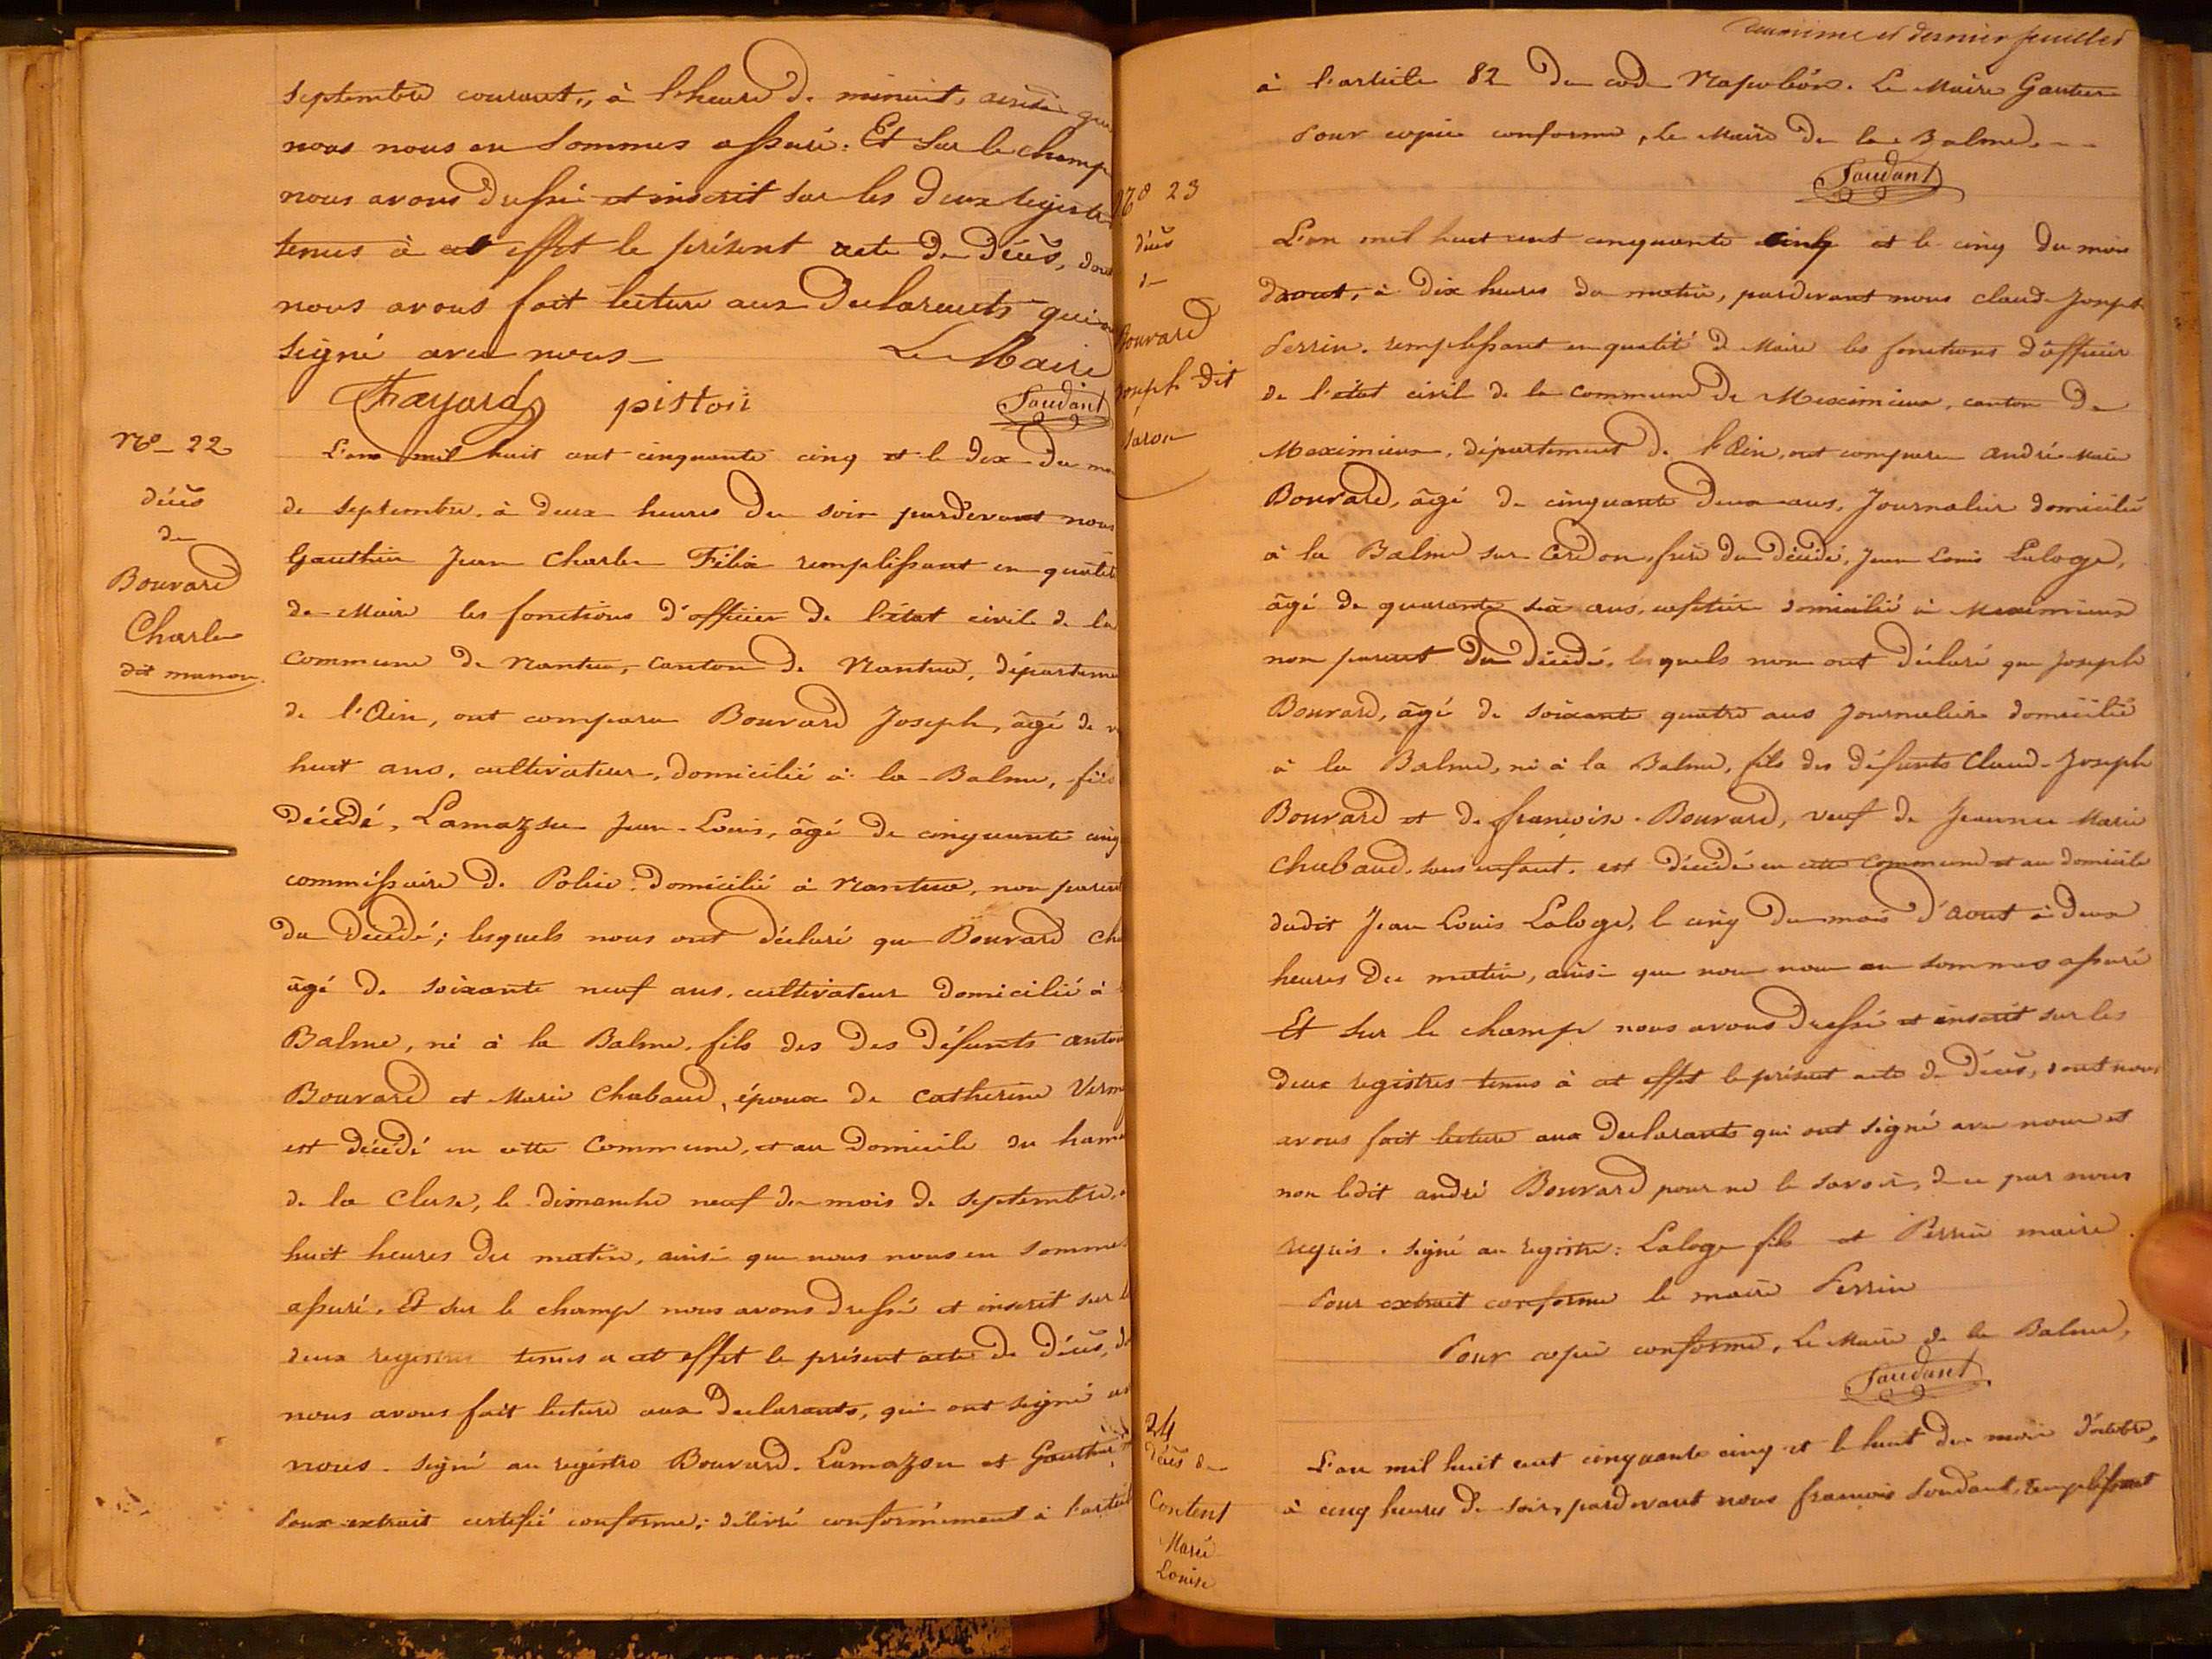 septembre courant, à l'heure de minuit, ainsi que
nous nous en sommes assuré. Et sur le champ
nous avons dressé et inscrit sur les deux registres
tenus à cet effet le présent acte de décès, dont
nous avons fait lecture aux declarants qui
signé avec nous Le Maire
Fayard pistoii Saudant
N° 22
décès
de
Bouvard
Charles
dit manon
L'an mil huit cent cinquante cinq et le dix du
de septembre, à deux heures du soir pardevant nous
Gauthier Jean Charles Félix remplissant en qualité
de Maire les fonctions d'officier de l'état civil de la
commune de Nantua, canton de Nantua, départeme
de l'Ain, ont comparu Bouvard Joseph, âgé de
huit ans, cultivateur, domicilié à la Balme, fils
décédé, Lamazsu Jean-Louis, âgé de cinquante cinq
commissaire de Police domicilié à Nantua, non parent
du décédé; lesquels nous ont déclaré que Bouvard Cha
âgé de soixante neuf ans, cultivateur domicilié à
Balme, né à la Balme, fils des des défunts antoi
Bouvard et Marie Chabaud, époux de Catherine Verm
est décédé en cette Commune, et au Domicile du hame
de la Cluse, le dimanche neuf du mois de septembre
huit heures du matin, ainsi que nous nous en somme
assuré. Et sur le champ nous avons dressé et inscrit sur l
deux registres tenus a cet effet le présent acte de décès, d
nous avons fait lecture aux declarants, qui ont signé av
nous. signé au registre Bouvard. Lamazsu et Gauthier
Pour extrait certifié conforme; délivré conformément à l'articl
deuxième et dernier feuillet
à l'article 82 du code Napoléon. Le Maire Gautier
Pour copie conforme, le Maire de la Balme.
Saudant
N° 23
décès
de
Bouvard
Joseph dit
L'an mil huit cent cinquante cinq et le cinq du mois
daout, à dix heures du matin, pardevant nous Claude Joseph
Perrin. remplissant en qualité de Maire les fonctions d'officier
de l'état civil de la commune de Meximieux, canton de
Meximieux, département de l'Ain, ont comparu andré Marie
Bouvard, âgé de cinquante deux ans, Journalier domicilié
à la Balme sur Cerdon, frère du décédé, Jean Louis Laloge,
âgé de quarante six ans, cafetier domicilié à Meximieux
non parent du décédé, lesquels nous ont déclaré que Joseph
Bouvard, âgé de soixante quatre ans Journalier domicilié
à la Balme, né à la Balme, fils des défunts Claude-Joseph
Bouvard et de françoise Bouvard, veuf de Jeanne Marie
Chabaud, sans enfant, est décédé en cette Commune et au domicile
dudit Jean Louis Laloge, le cinq du mois d'aout à deux
heures du matin, ainsi que nous nous en sommes assuré
Et sur le champ nous avons dressé et inscrit sur les
deux registres tenus à cet effet le présent acte de décès, dont nous
avons fait lecture aux declarants qui ont signé avec nous et
non ledit andré Bouvard pour ne le savoir, de ce par nous
requis. signé au registre: Laloge fils et Perrin maire
Pour extrait conforme le maire Perrin
Pour copie conforme, Le Maire de la Balme,
Saudant
24
décès de
Content
Marie
Louise
L'an mil huit cent cinquante cinq et le huit du mois d'octobre,
à cinq heures du soir, pardevant nous françois Soudant, remplissant